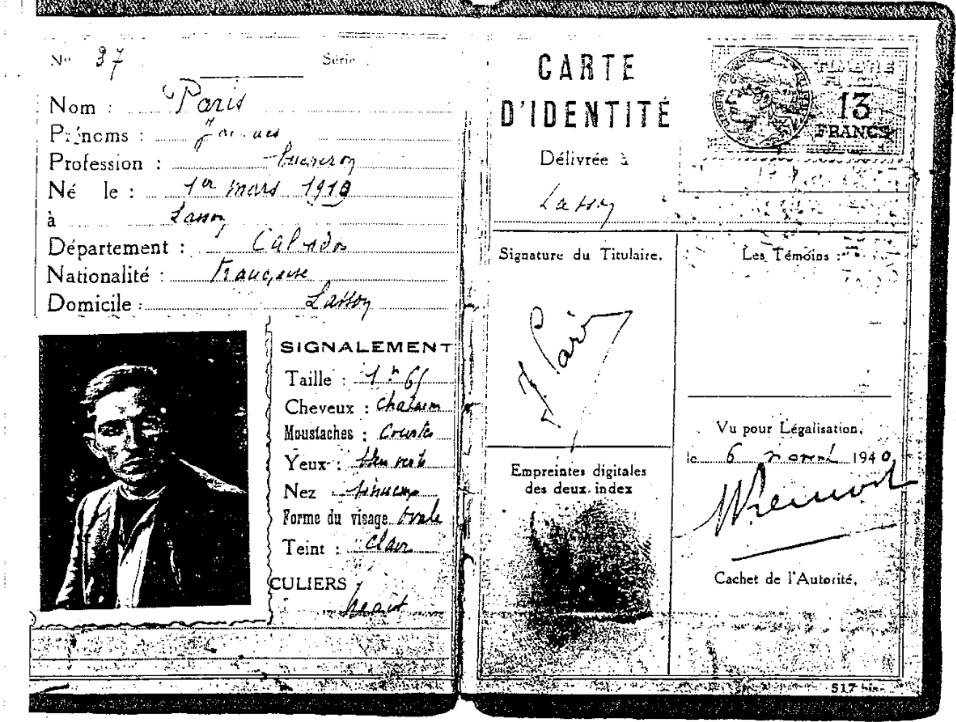 No 37 Série
Nom : Paris
Prénoms : Jacques
Profession :
Né le : 1er mars 1919
à Lasson
Département : Calvados
Nationalité : Française
Domicile : Lasson
SIGNALEMENT
Taille : 1m 65
Cheveux : Chatain
Moustaches : Courtes
Yeux : bleu verts
Nez
Forme du visage Ovale
Teint : Clair
CULIERS
Néant
CARTE
D'IDENTITÉ
Délivrée à
Lasson
TIMBRE
FISCAL
13
FRANCS
Signature du Titulaire,
J Paris
Empreintes digitales
des deux index
Les Témoins :
Vu pour Légalisation,
le 6 novembre 1940
Cachet de l'Autorité,
517 bis